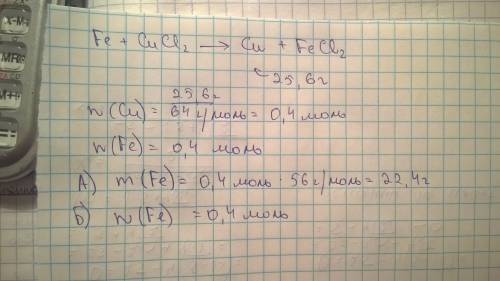 X-M
MR
M+
Fe + CuCl₂ → Cu + FeCl₂
25,6г
n(Cu) = 25 6г / 64 г/моль = 0,4 моль
n(Fe) = 0,4 моль
А) m(Fe) = 0,4 моль · 56 г/моль = 22,4г
Б) n(Fe) = 0,4 моль